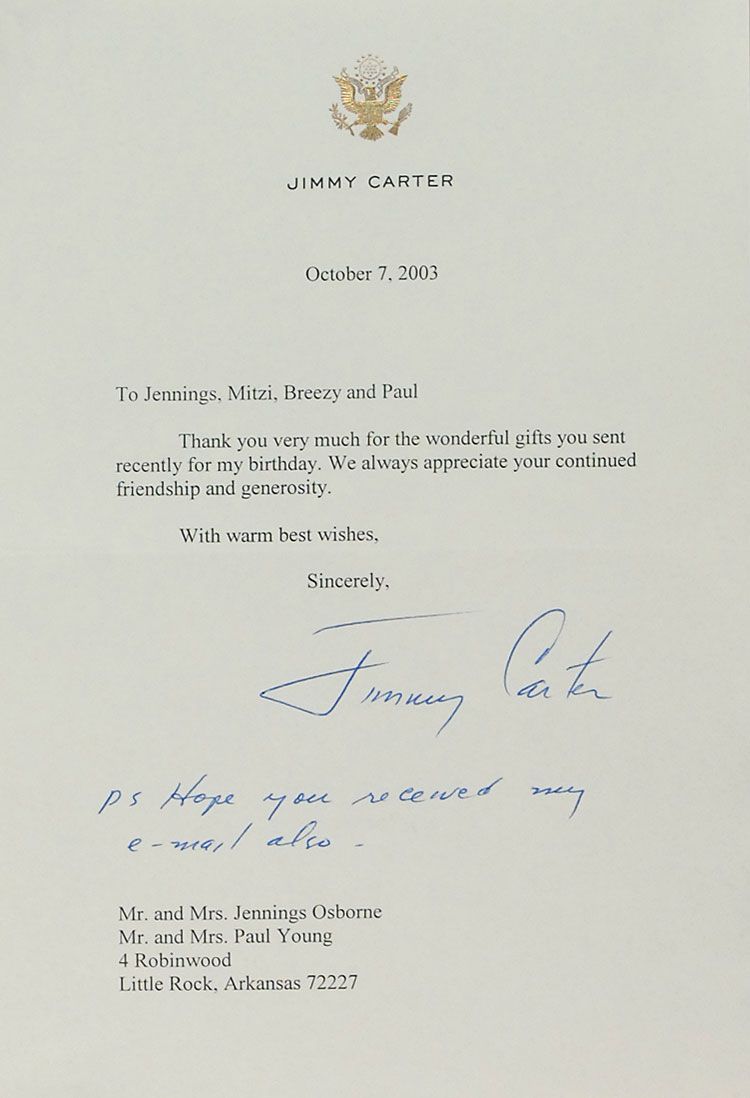 JIMMY CARTER
October 7, 2003
To Jennings, Mitzi, Breezy and Paul
Thank you very much for the wonderful gifts you sent
recently for my birthday. We always appreciate your continued
friendship and generosity.
With warm best wishes,
Sincerely,
Jimmy Carter
ps Hope you received my
e-mail also -
Mr. and Mrs. Jennings Osborne
Mr. and Mrs. Paul Young
4 Robinwood
Little Rock, Arkansas 72227